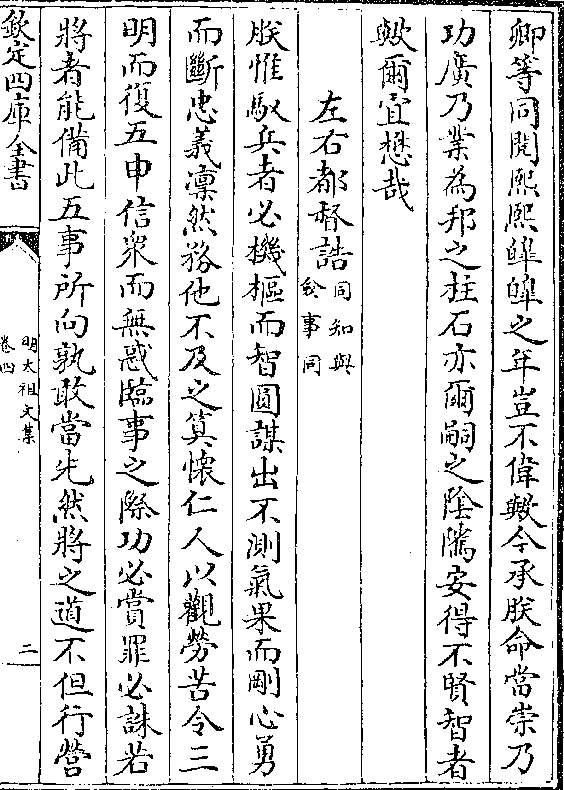 卿等同閱熈熈皥皥之年豈不偉歟今承朕命當崇乃
功廣乃業為邦之柱石亦爾嗣之陰隲安得不賢智者
歟爾宜懋哉
左右都督誥同知與僉事同
朕惟馭兵者必機樞而智圓謀出不測氣果而剛心勇
而斷忠義凛然務他不及之筭懷仁人以觀勞苦令三
明而復五申信衆而無惑臨事之際功必賞罪必誅若
將者能備此五事所向孰敢當先然將之道不但行營
欽定四庫全書
明太祖文集
卷四
二